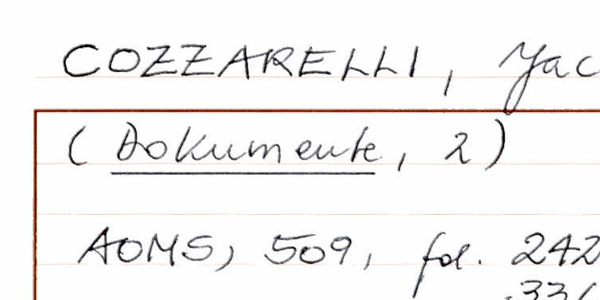 COZZARELLI, Jac
(Dokumente, 2)
AOMS, 509, fol. 242